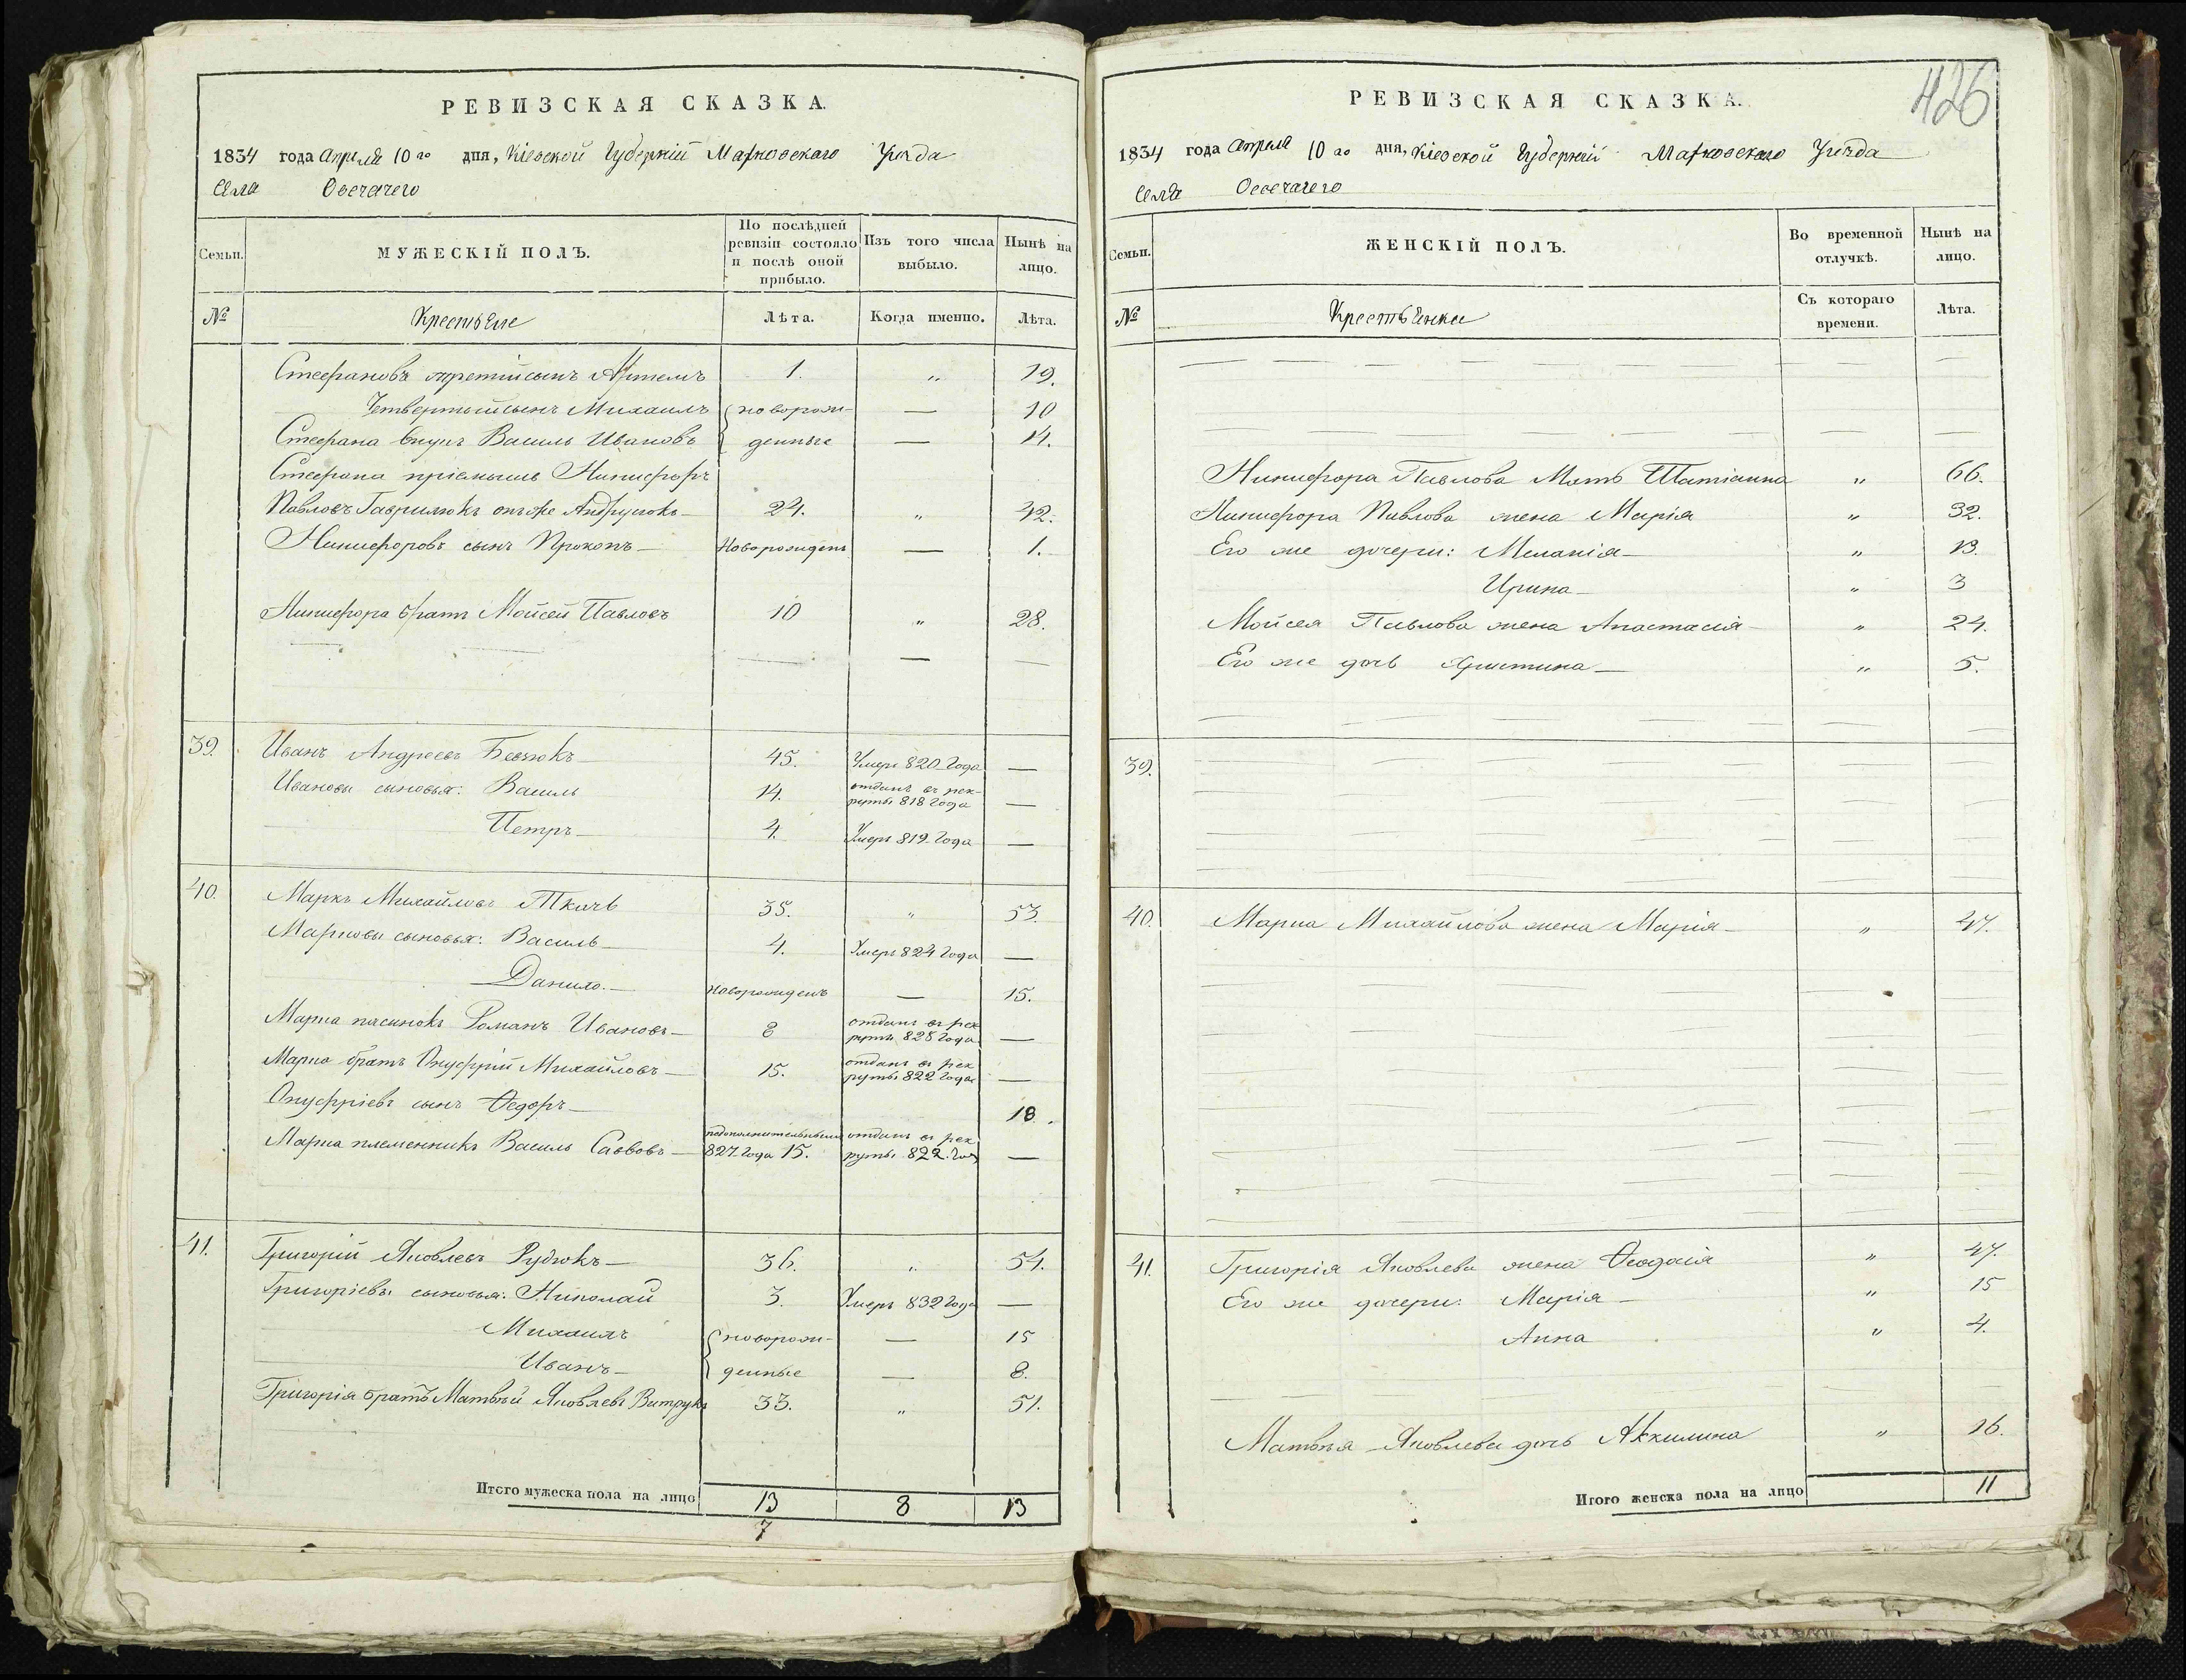 РЕВИЗСКАЯ СКАЗКА.
1834 года Апреля 10го дня, Кіевской Губерніи Махновскаго Уѣзда
Села Овечачего
Семьи.
МУЖЕСКІЙ ПОЛЪ.
По послѣдней ревизіи состояло и послѣ оной прибыло.
Изъ того числа выбыло.
Нынѣ на лицо.
№ Крестьяне Лѣта. Когда именно. Лѣта.
Стефановъ третій сынъ Артемъ 1. " 19.
Четвертый сынъ Михаилъ новорож- — 10
Стефана внукъ Василь Ивановъ денные — 14.
Стефана пріемышъ Никифоръ
Павловъ Гаврилюкъ онъ же Андрущокъ 24. " 42.
Никифоровъ сынъ Прокопъ — Новорожденъ — 1.
Никифора братъ Мойсей Павловъ 10 " 28.
39. Иванъ Андреевъ Бевзюкъ — 45. Умеръ 820 года —
Ивановы сыновья: Василь 14. отданъ въ рек-руты 818 года —
Петръ — 4. Умеръ 819 года —
40. Маркъ Михайловъ Ткачь 35. " 53.
Марковы сыновья: Василь — 4. Умеръ 824 года —
Данило. — новорожденъ — 15.
Марка пасынокъ Романъ Ивановъ — 8 отданъ въ рек-руты 828 года —
Марка братъ Онуфрій Михайловъ — 15. отданъ въ рек-руты 822 года —
Онуфріевъ сынъ Ѳедоръ — 18.
Марка племенникъ Василь Саввовъ — подополнительнымъ 827 года 15. отданъ въ рек-руты 822 года —
41. Григорій Яковлевъ Рудюкъ — 36. " 54.
Григоріевы сыновья: Николай 3. Умеръ 832 года —
Михаилъ новорож- — 15
Иванъ — денные — 8.
Григорія братъ Матвѣй Яковлевъ Витрукъ 33. " 51.
Итого мужеска пола на лицо 13 8 13
7
426
РЕВИЗСКАЯ СКАЗКА.
1834 года Апреля 10го дня, Кіевской Губерніи Махновскаго Уѣзда
Села Овечачего
Семьи.
ЖЕНСКІЙ ПОЛЪ.
Во временной отлучкѣ.
Нынѣ на лицо.
№ Крестьянки Съ котораго времени. Лѣта.
Никифора Павлова Мать Татіанна " 66.
Никифора Павлова жена Марія " 32.
Его же дочери: Меланія — " 13.
Ирина — " 3
Мойсея Павлова жена Анастасія — " 24.
Его же дочь Христина — " 5.
39.
40. Марка Михайлова жена Марія — " 47.
41. Григорія Яковлева жена Ѳеодосія " 47.
Его же дочери: Марія — " 15
Анна " 4.
Матвѣя Яковлева дочь Аккилина " 16.
Итого женска пола на лицо 11